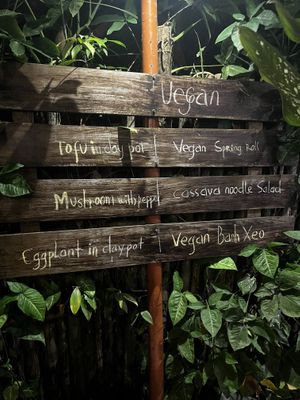 Vegan
Tofu in clay pot | Vegan Spring Roll
Mushroom with pepp | Cassava noodle Salad
Eggplant in clay pot | Vegan Banh Xeo